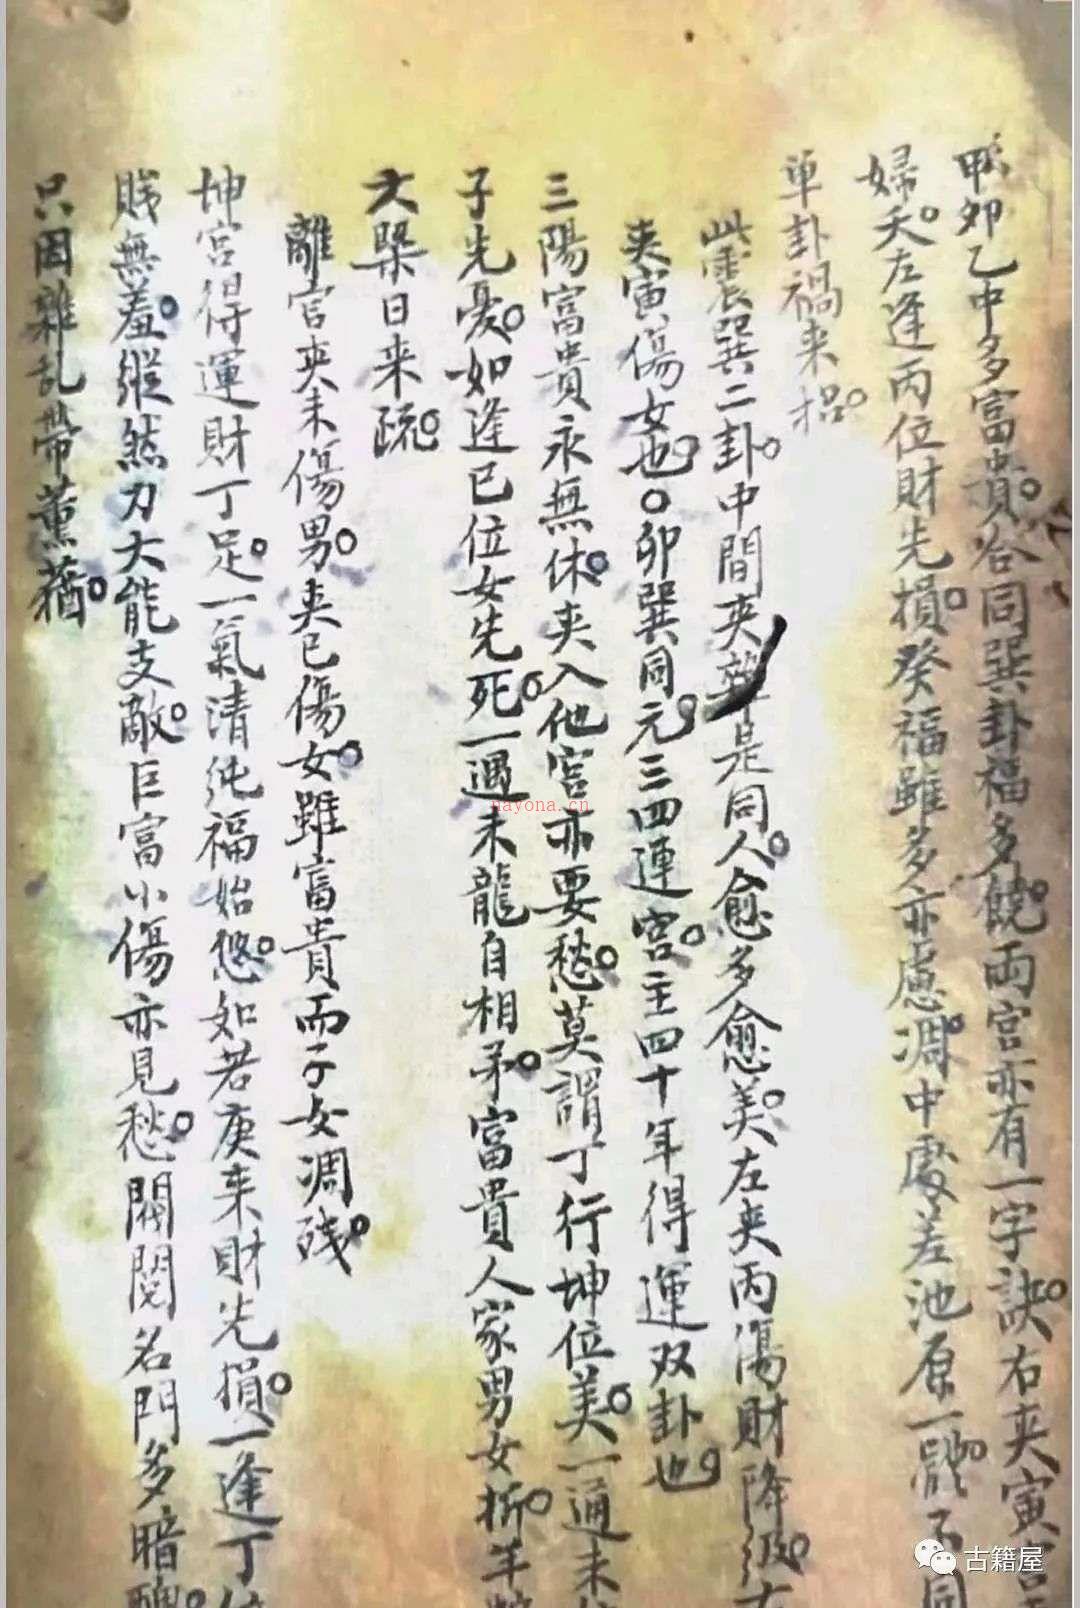 甲卯乙中多富貴合同巽卦福多饒兩宮亦有一字訣右夾寅宮
婦夭左逢丙位財先損癸福雖多亦慮凋中處差池原一
單卦禍来招
此震巽二卦中間夾雜是同人愈多愈美左夾丙傷財降級右
夾寅傷女也〇卯巽同元三四連宮主四十年得運双卦也
三陽富貴永無休夾入他宮亦要愁莫謂丁行坤位美一通未
子先憂如逢巳位女先死一遇未龍自相矛富貴人家男女折羊
大槩日来疏
離宮夾未傷男夾巳傷女雖富貴而子女凋残
坤宮得運財丁足一氣清純福始悠如若庚来財先損一逢丁位
賎無羞縱然力大能支敵巨富小傷亦見愁閥閱名門多暗醜
只因雜乱帶薰蕕
nayona.cn
古籍屋